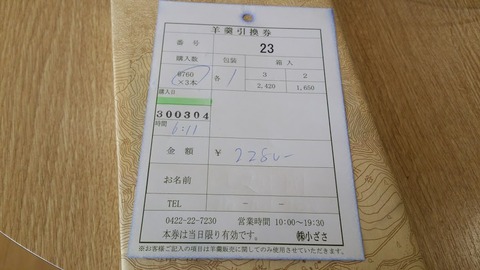 羊羹引換券
番号 23
購入数 包装 箱入
@760 ×3本 各1 3 2
2,420 1,650
購入日
300304
時間 6:11
金額 ¥ 2280-
お名前
TEL - -
0422-22-7230 営業時間 10:00~19:30
本券は当日限り有効です。 ㈱小ざさ
※お客様ご記入の項目は羊羹販売に関してのみ使用させていただきます。